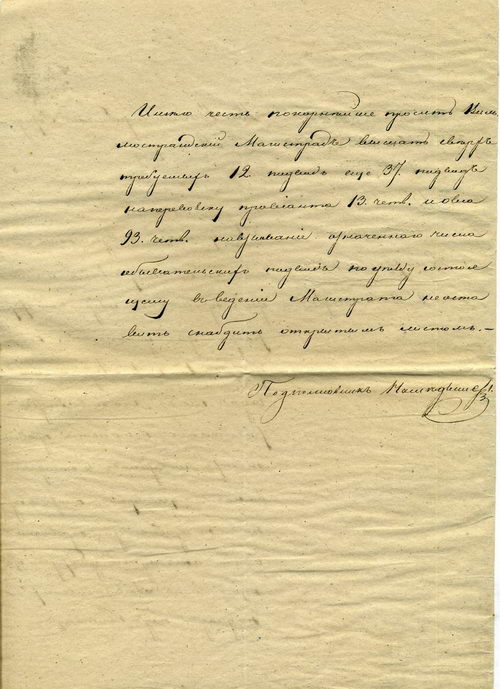 Имею честь покорнѣйше просить Виль
манстрандскій Магистратъ выслать сверхъ
требуемыхъ 12. подводъ еще 37. подводъ
на перевозку провіанта 13. четв. и овса
93. четв. на взиманіе означеннаго числа
обывательскихъ подводъ по уѣзду состоя
щему въ веденіи Магистрата не оста
вить снабдить открытымъ листомъ. —
Подполковникъ